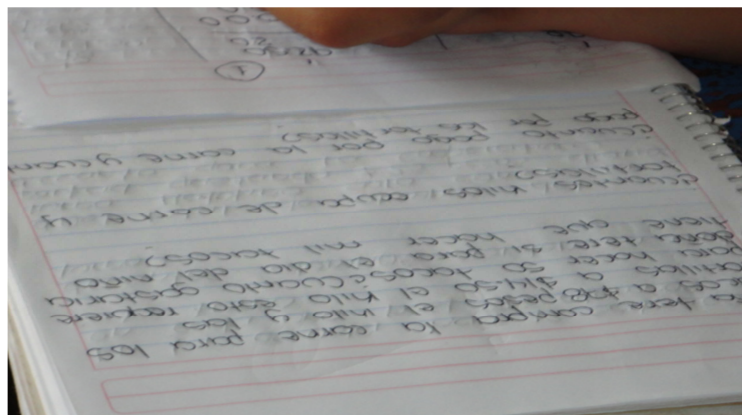 tere compra la carne para los
a $78 pesos el kilo y las
tortillas a $14.50 el kilo esto requiere
para hacer 50 tacos ¿cuanto gastaria
doña tere si para el dia del niño
tiene que hacer mil tacos?
¿cuantos kilos ocupa de carne y
tortillas?
¿cuanto pago por la carne y cuan
pago por las tortillas?
1